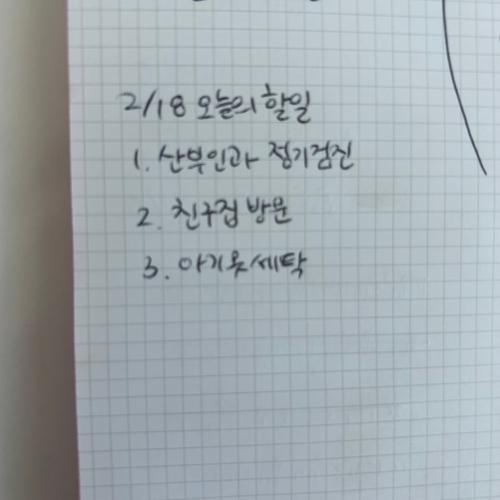 2/18 오늘의 할일
1. 산부인과 정기검진
2. 친구집 방문
3. 아기옷 세탁